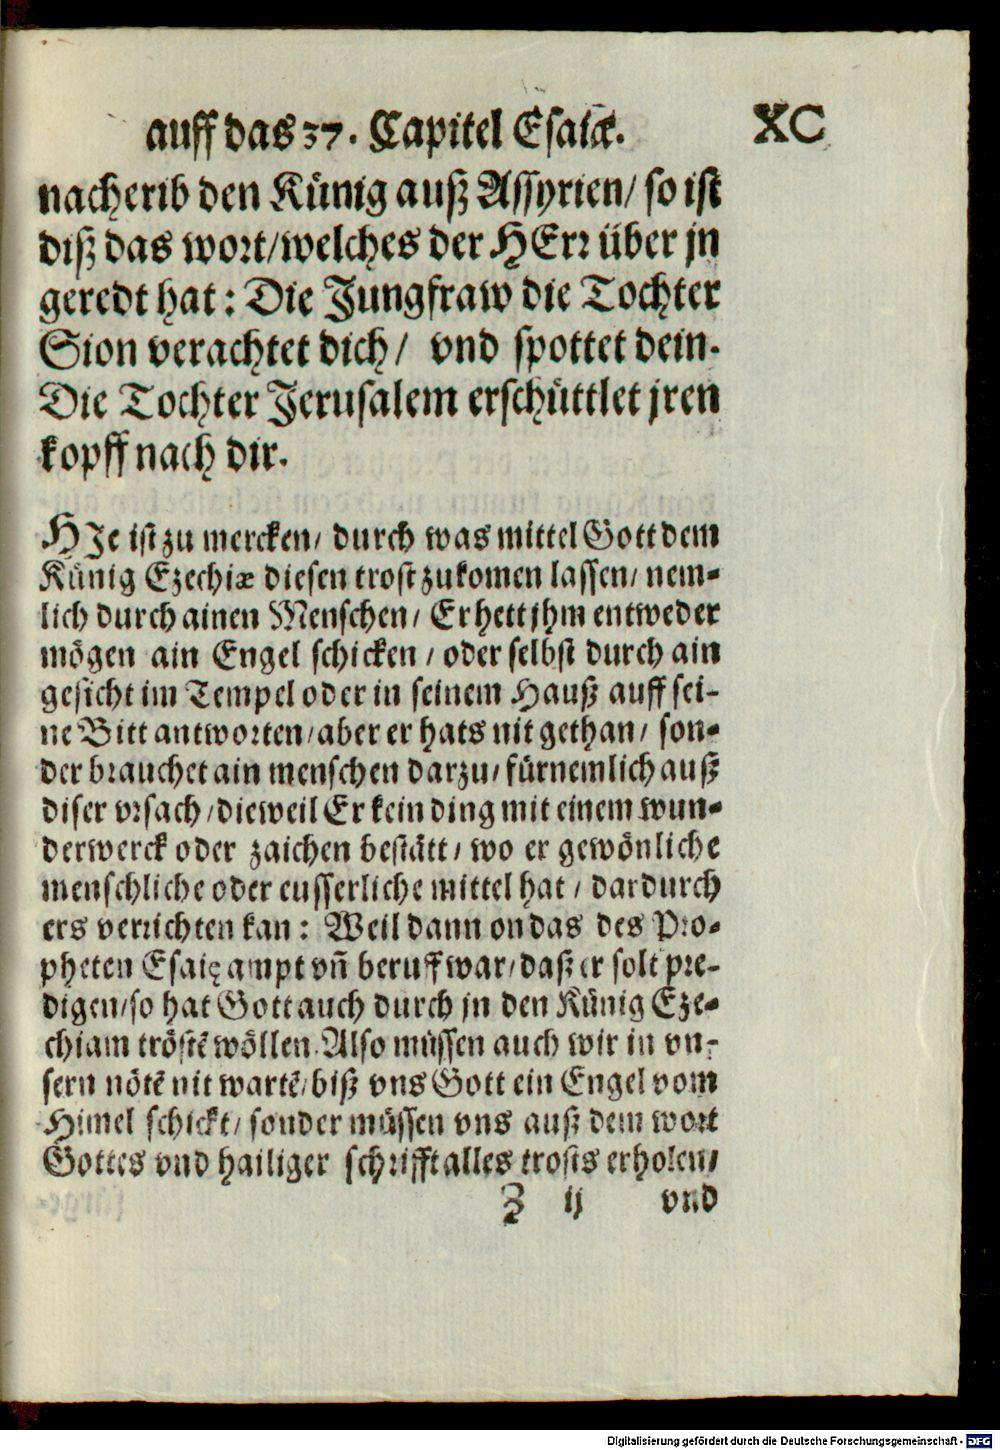 auff das 37. Capitel Esaiæ. XC
nacherib den Künig auß Assyrien/ so ist
diß das wort/welches der HErr über jn
geredt hat: Die Jungfraw die Tochter
Sion verachtet dich/ vnd spottet dein.
Die Tochter Jerusalem erschüttlet jren
kopff nach dir.
HJe ist zu mercken/ durch was mittel Gott dem
Künig Ezechiæ diesen trost zukomen lassen/ nem-
lich durch ainen Menschen/ Er hett jhm entweder
mögen ain Engel schicken/ oder selbst durch ain
gesicht im Tempel oder in seinem Hauß auff sei-
ne Bitt antworten/aber er hats nit gethan/ son-
der brauchet ain menschen darzu/ fürnemlich auß
diser vrsach/dieweil Er kein ding mit einem wun-
derwerck oder zaichen bestätt/ wo er gewönliche
menschliche oder eusserliche mittel hat/ dardurch
ers verrichten kan: Weil dann on das des Pro-
pheten Esaię ampt vñ beruff war/daß er solt pre-
digen/so hat Gott auch durch jn den Künig Eze-
chiam tröstē wöllen. Also müssen auch wir in vn-
sern nötē nit wartē/biß vns Gott ein Engel vom
Himel schickt/ sonder müssen vns auß dem wort
Gottes vnd hailiger schrifft alles trosts erholen/
Z ij vnd
Digitalisierung gefördert durch die Deutsche Forschungsgemeinschaft - DFG